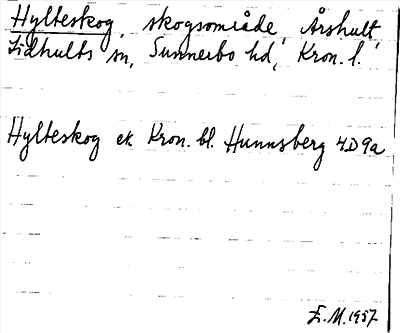 Hylteskog, skogsområde, Årshult,
Lidhults sn, Sunnerbo hd, Kron. l.
Hylteskog ek. Kron. bl. Hunnsberg 4D9a
E.M. 1957